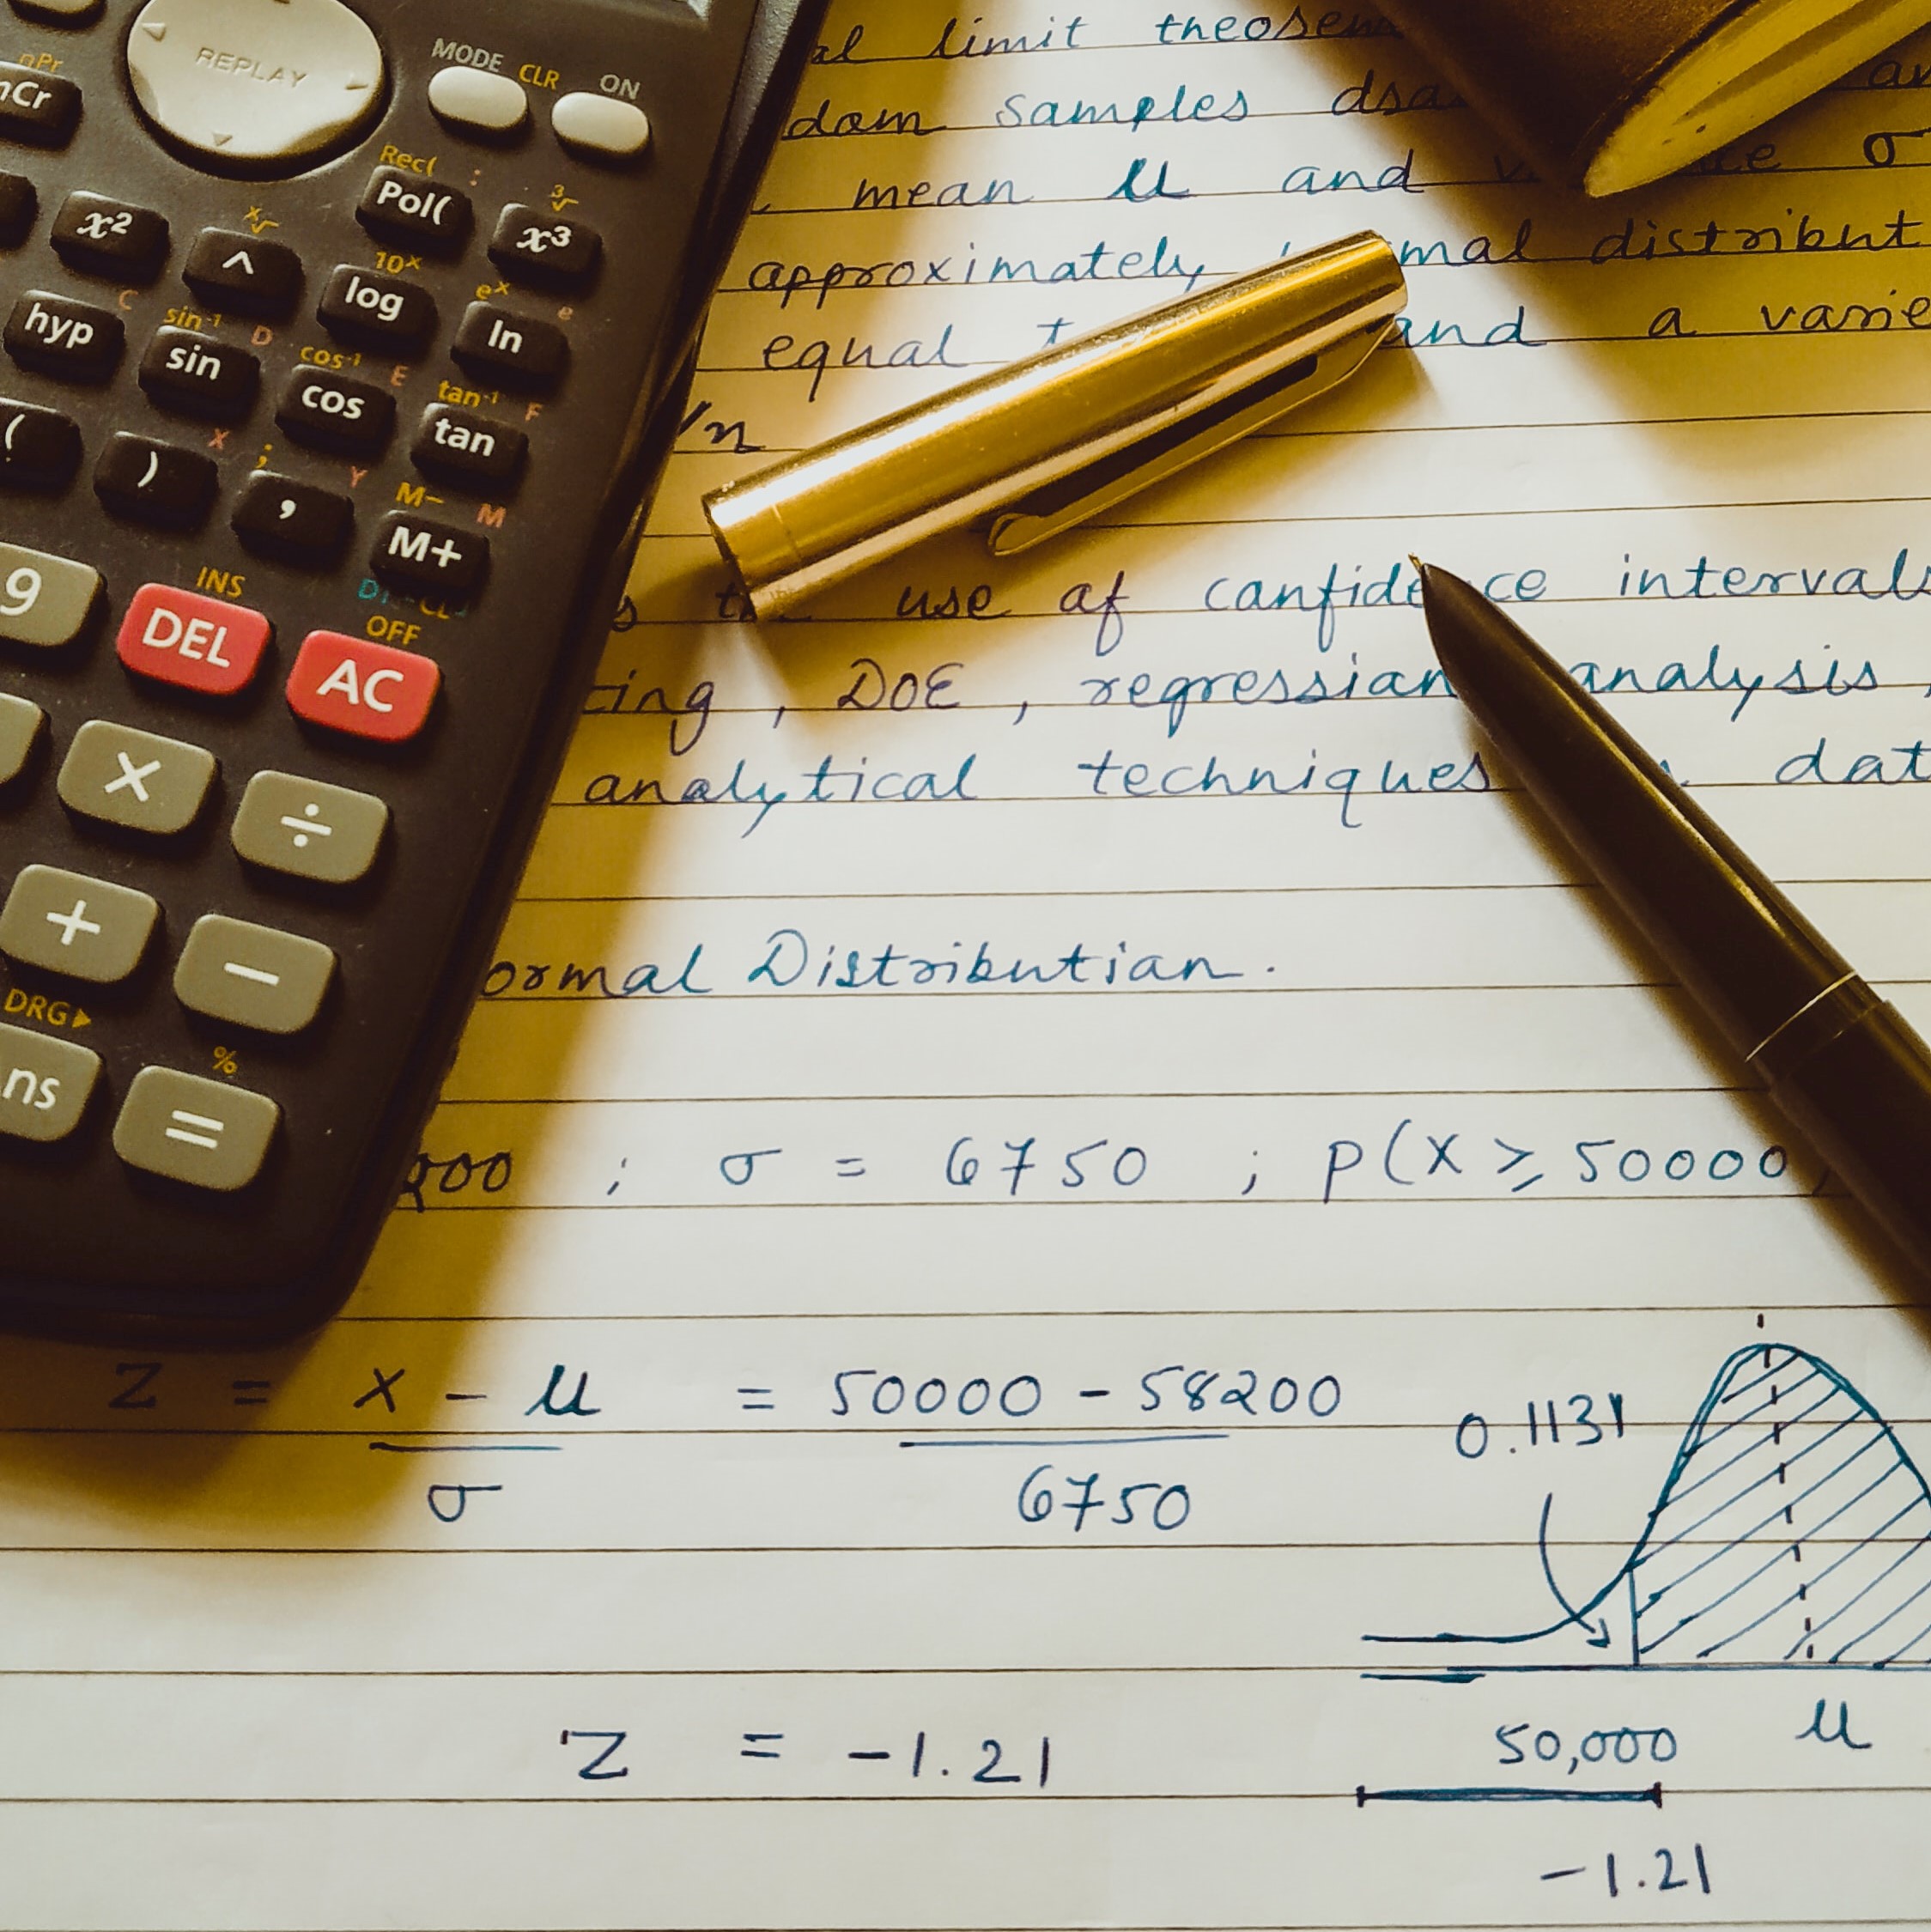 REPLAY
MODE CLR ON
nPr
nCr
Rec( :
Pol(
3√
x³
x²
x√
^
10ˣ
log
eˣ e
ln
C
hyp
sin⁻¹ D
sin
cos⁻¹ E
cos
tan⁻¹ F
tan
(
X
)
; Y
,
M− M
M+
9
INS
DEL
OFF
AC
×
÷
+
−
DRG▶
ns
%
=
al limit theorem
dom samples dra
mean μ and σ
approximately mal distribut
equal and a varie
/n
use of confide ce intervals
ting, DOE, regression analysis,
analytical techniques dat
ormal Distribution.
200 ; σ = 6750 ; P(X ≥ 50000)
Z = x − μ = 50000 − 58200
σ 6750
0.1131
Z = −1.21
50,000 μ
−1.21